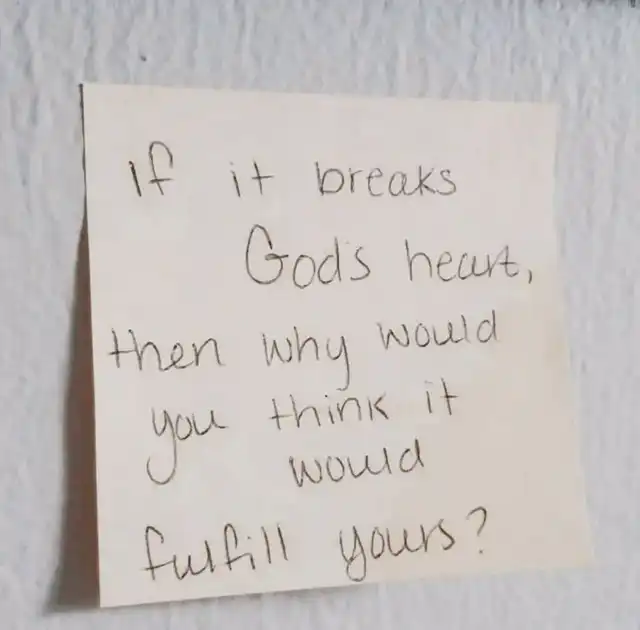 If it breaks
God's heart,
then why would
you think it
would
fulfill yours?